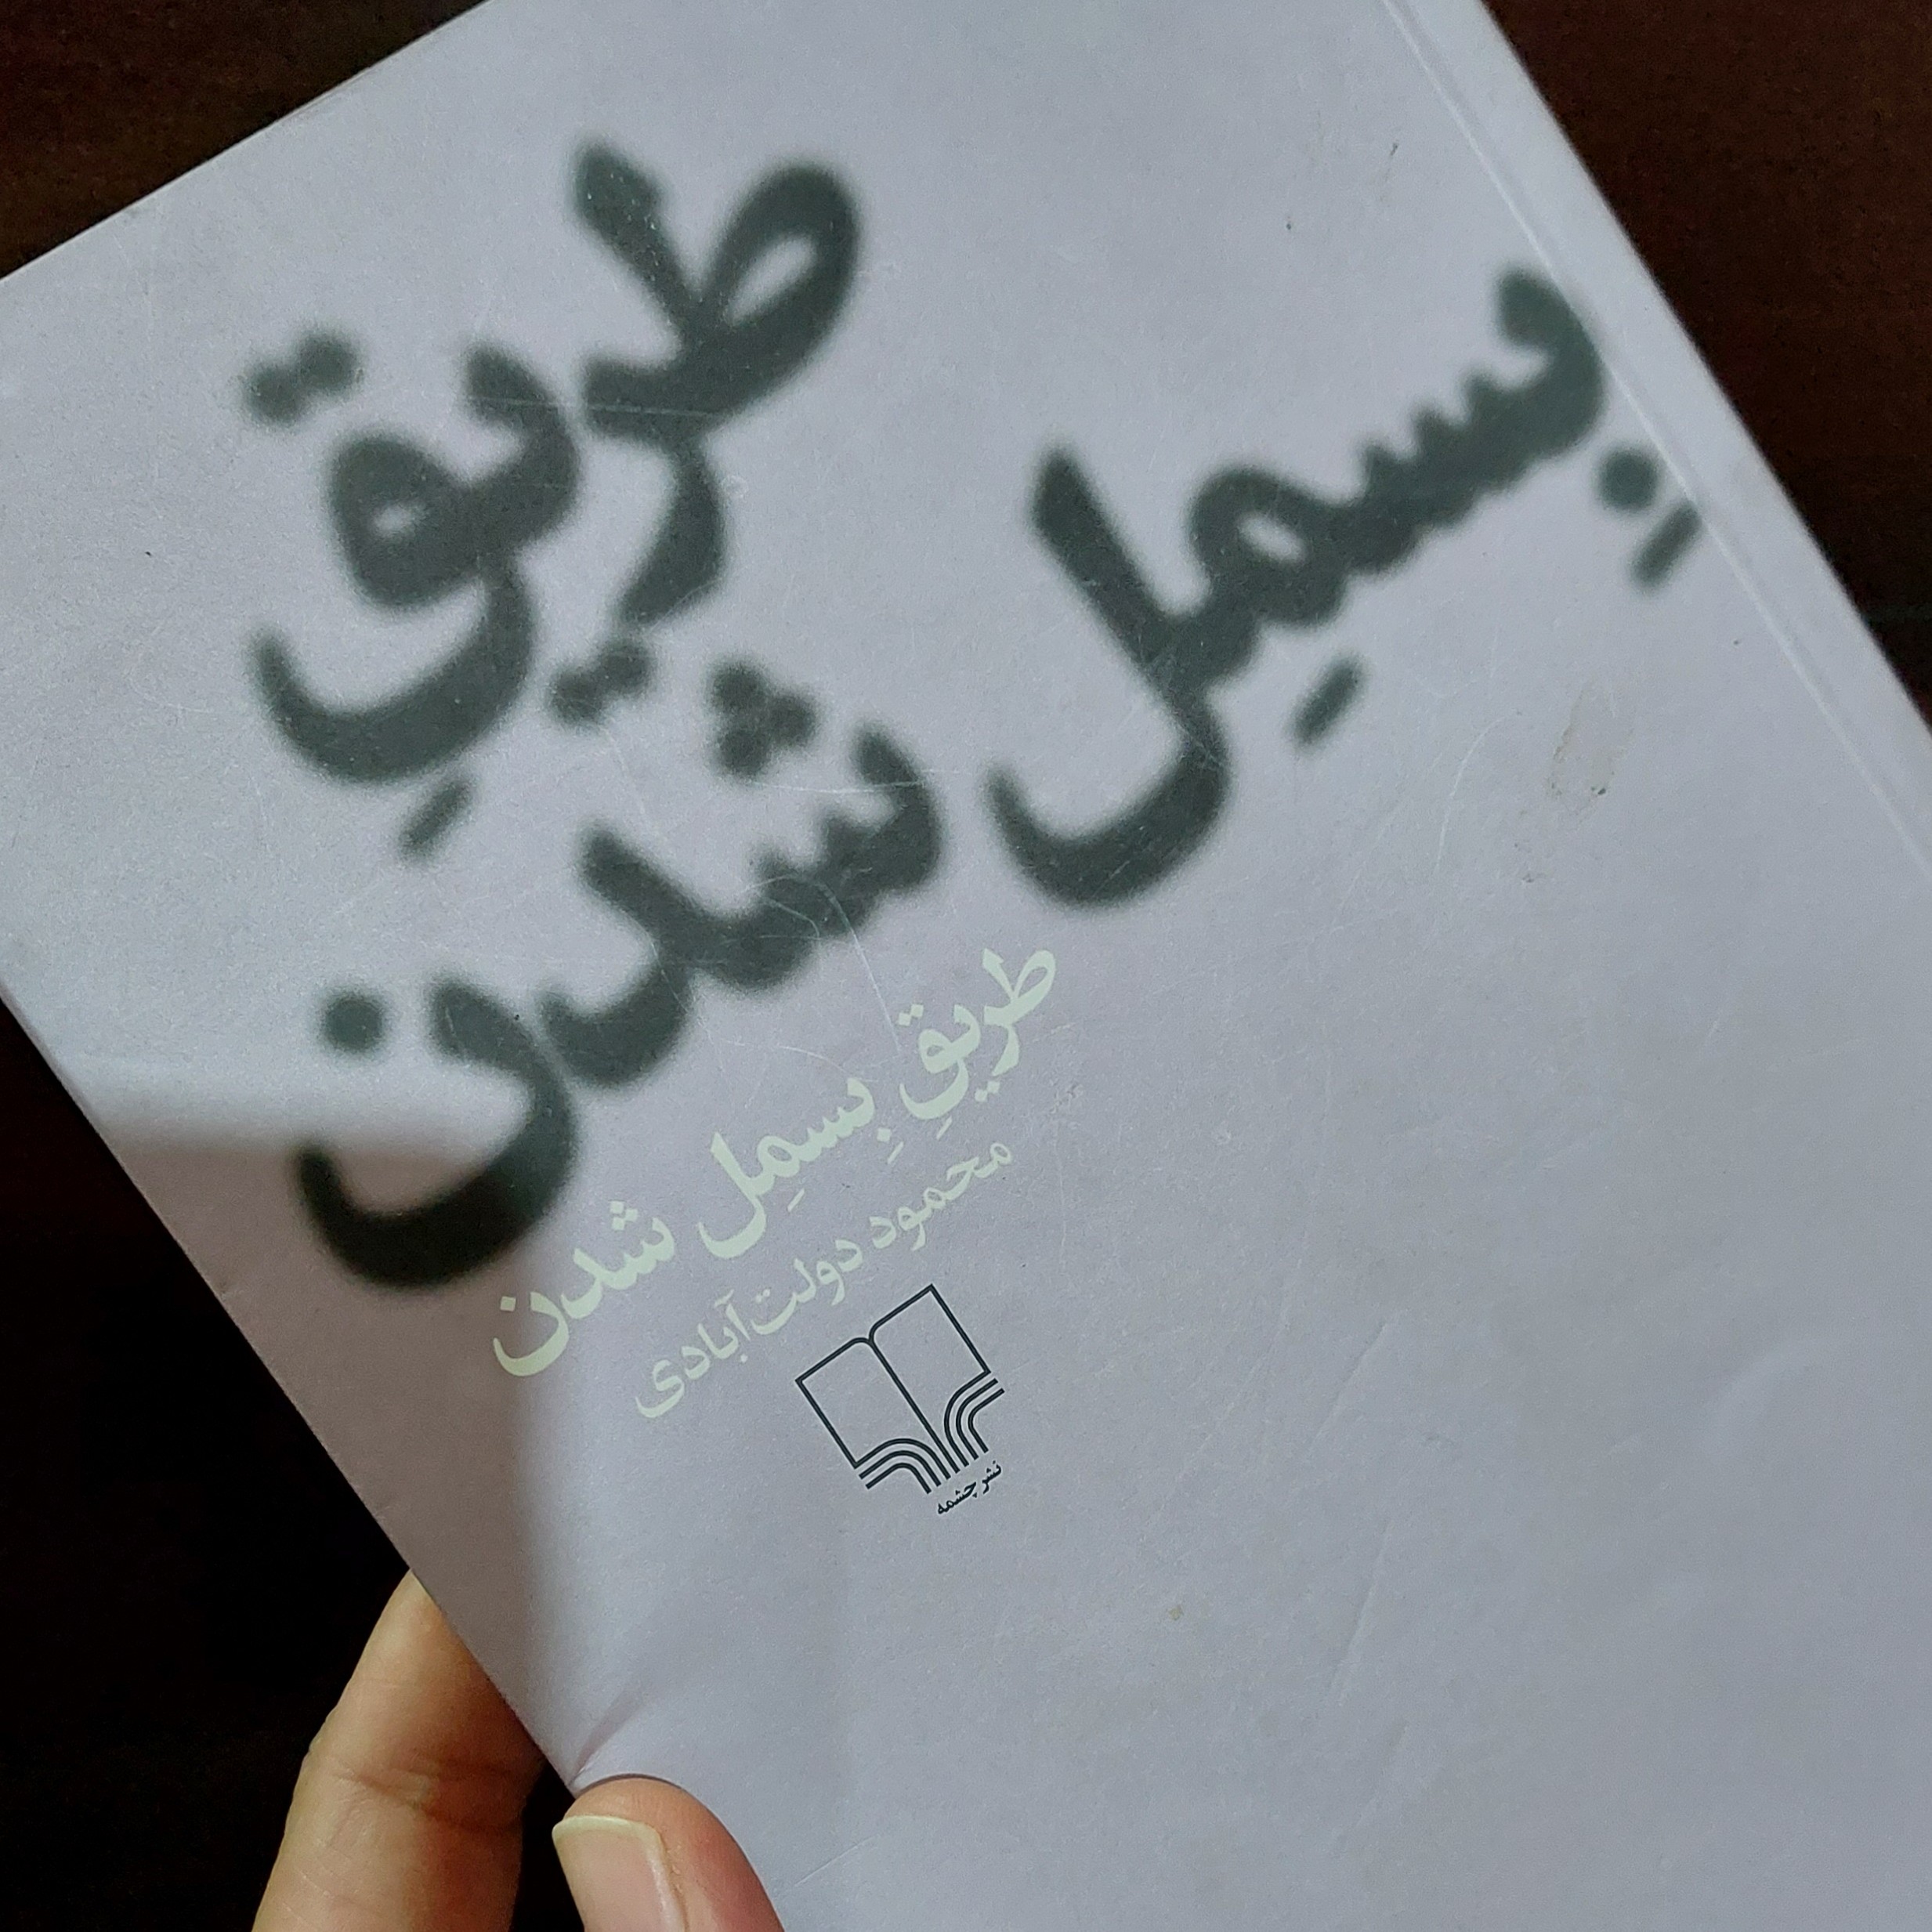 طریقِ
بِسمِل شدن
طریقِ بِسمِل شدن
محمود دولت‌آبادی
نشر چشمه